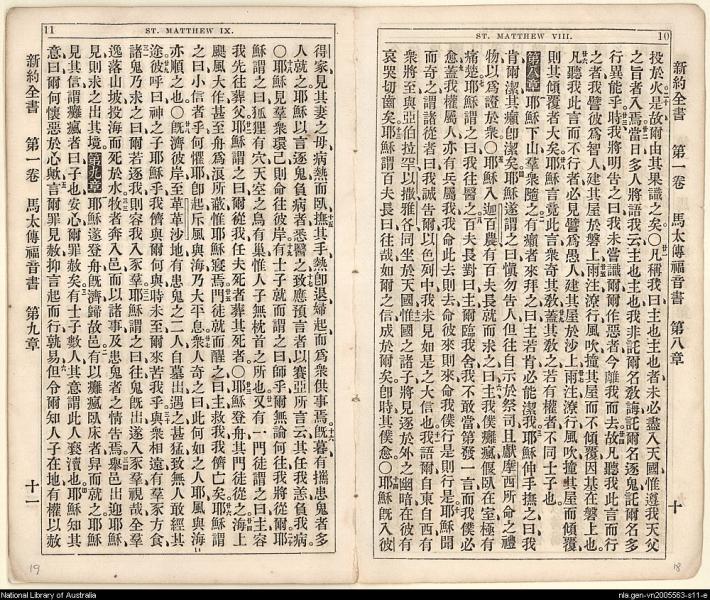 ST. MATTHEW VIII.
10
新約全書 第一卷 馬太傳福音書 第八章 十
投於火是故爾由其果識之矣〇凡稱我曰主也主也者未必盡入天國惟遵我天父
之旨者入焉當日多人將語我云主也主也我非託爾名敎誨託爾名逐鬼託爾名多
行異能乎時我將明告之曰我未嘗識爾爾作惡者今離我而去故凡聽我此言而行
之者我譬彼爲智人建其屋於磐上雨注潦行風吹撞其屋而不傾覆因基在磐上也
凡聽我此言而不行者必見譬爲愚人建其屋於沙上雨注潦行風吹撞其屋而傾覆
則其傾覆者大矣耶穌言竟此言衆奇其敎蓋其敎之若有權者不同士子也
第八章 耶穌下山羣衆隨之有癩者來拜之曰主若肯必能潔我耶穌伸手撫之曰我
肯爾潔其癩卽潔矣耶穌遂謂之曰愼勿告人但往自示於祭司且獻摩西所命之禮
物以爲證於衆〇耶穌入迦百農有百夫長就而求之曰主我僕癱瘋偃臥在室極有
痛楚耶穌謂之曰我往醫之百夫長對曰主爾臨我舍我不敢當第發一言而我僕必
愈蓋我權屬人亦有兵屬我我命此去則去命彼來則來命我僕行是則行是耶穌聞
而奇之謂諸從者曰我誠告爾以色列中我未見如是之大信也我語爾自東自西有
衆將至與亞伯拉罕以撒雅各同坐於天國惟國之諸子將見逐於外之幽暗在彼有
哀哭切齒矣耶穌謂百夫長曰往哉如爾之信成於爾矣卽時其僕愈〇耶穌旣入彼
11
ST. MATTHEW IX.
得家見其妻之母病熱而臥撫其手熱卽退婦起而爲衆供事焉旣暮有攜患鬼者多
人就之耶穌以言逐鬼負病者悉醫之致應預言者以賽亞所言云其任我恙負我病
〇耶穌見羣衆環己則命往彼岸有士子就而謂之曰師乎爾無論何往我將從爾耶
穌謂之曰狐狸有穴天空之鳥有巢惟人子無枕首之所也又有一門徒謂之曰主容
我先往葬父耶穌謂之曰爾從我任夫死者葬其死者〇耶穌登舟其門徒從之海上
颶風大作甚至舟爲浪所蔽惟耶穌寢焉門徒就而醒之曰主救我我儕亡矣耶穌謂
之曰小信者乎何懼耶卽起斥風與海乃大平息衆人奇之曰此何如之人耶風與海
亦順之也〇旣濟彼岸至革革沙地有患鬼之二人自墓出遇之甚猛致無人敢經其
途彼呼曰神之子耶穌乎我儕與爾何與時未至爾來苦我乎與衆相遠有羣豕方食
諸鬼乃求之曰爾若逐我則容我入豕羣耶穌謂之曰往鬼旣出遂入豕羣視哉全羣
逸落山坡投海而死於水牧者奔入邑而以諸事及患鬼者之情告焉舉邑出迎耶穌
見則求之出其境第九章耶穌遂登舟旣濟歸故邑有以癱瘋臥床者舁而就之耶穌
見其信謂癱瘋者曰子也安心爾罪赦矣有士子數人其意謂此人褻瀆也耶穌知其
意曰爾何懷惡於心歟言爾罪見赦抑言起而行孰易但令爾知人子在地有權以赦
新約全書 第一卷 馬太傳福音書 第九章 十一
19
18
National Library of Australia
nla.gen-vn2005563-s11-e